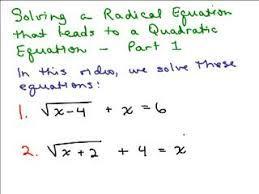 Solving a Radical Equation
that leads to a Quadratic
Equation - Part 1
In this video, we solve these
equations:
1. √(x-4) + x = 6
2. √(x+2) + 4 = x